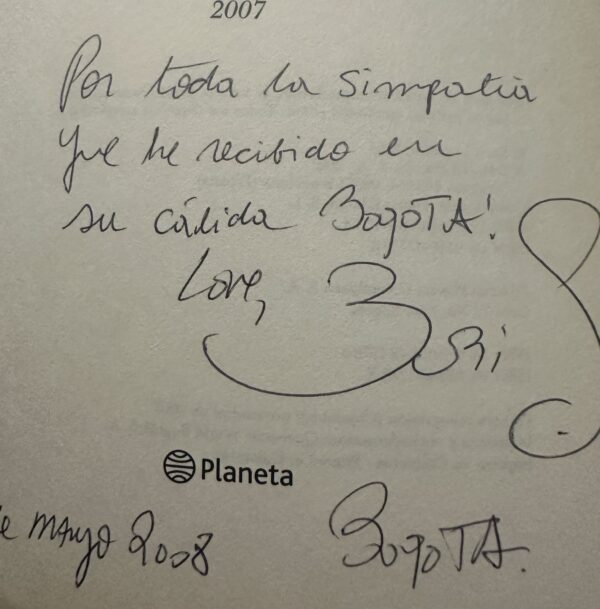 2007
Por toda la simpatia
que he recibido en
su cálida BogoTA!
Love, Bori
Planeta
de mayo 2008 BogoTA.